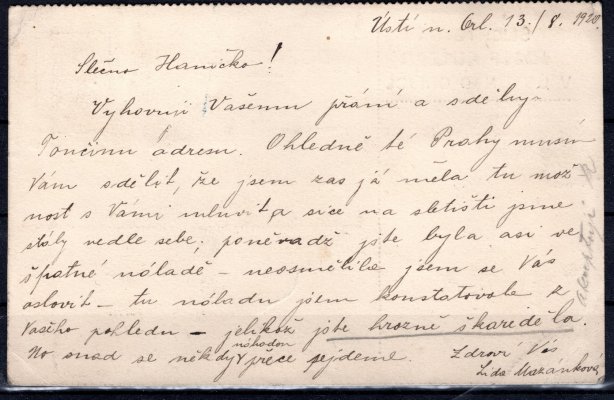 Ústí n. Orl. 13./8. 1920.
Slečno Haničko!
Vyhovuji Vašemu přání a sděluji
Tončinu adresu. Ohledně té Prahy musím
Vám sdělit, že jsem zas já měla tu mož
nost s Vámi mluvit a sice na sletišti jsme
stály vedle sebe; poněvadž jste byla asi ve
špatné nóladě – neosmělila jsem se Vás
oslovit – tu nóladu jsem konstatovala z
Vašeho pohledu – jelikož jste hrozně škaredě la.
No snad se někdy náhodou přece sejdeme. Zdraví Vás
Lida Mazánková
akceptuji